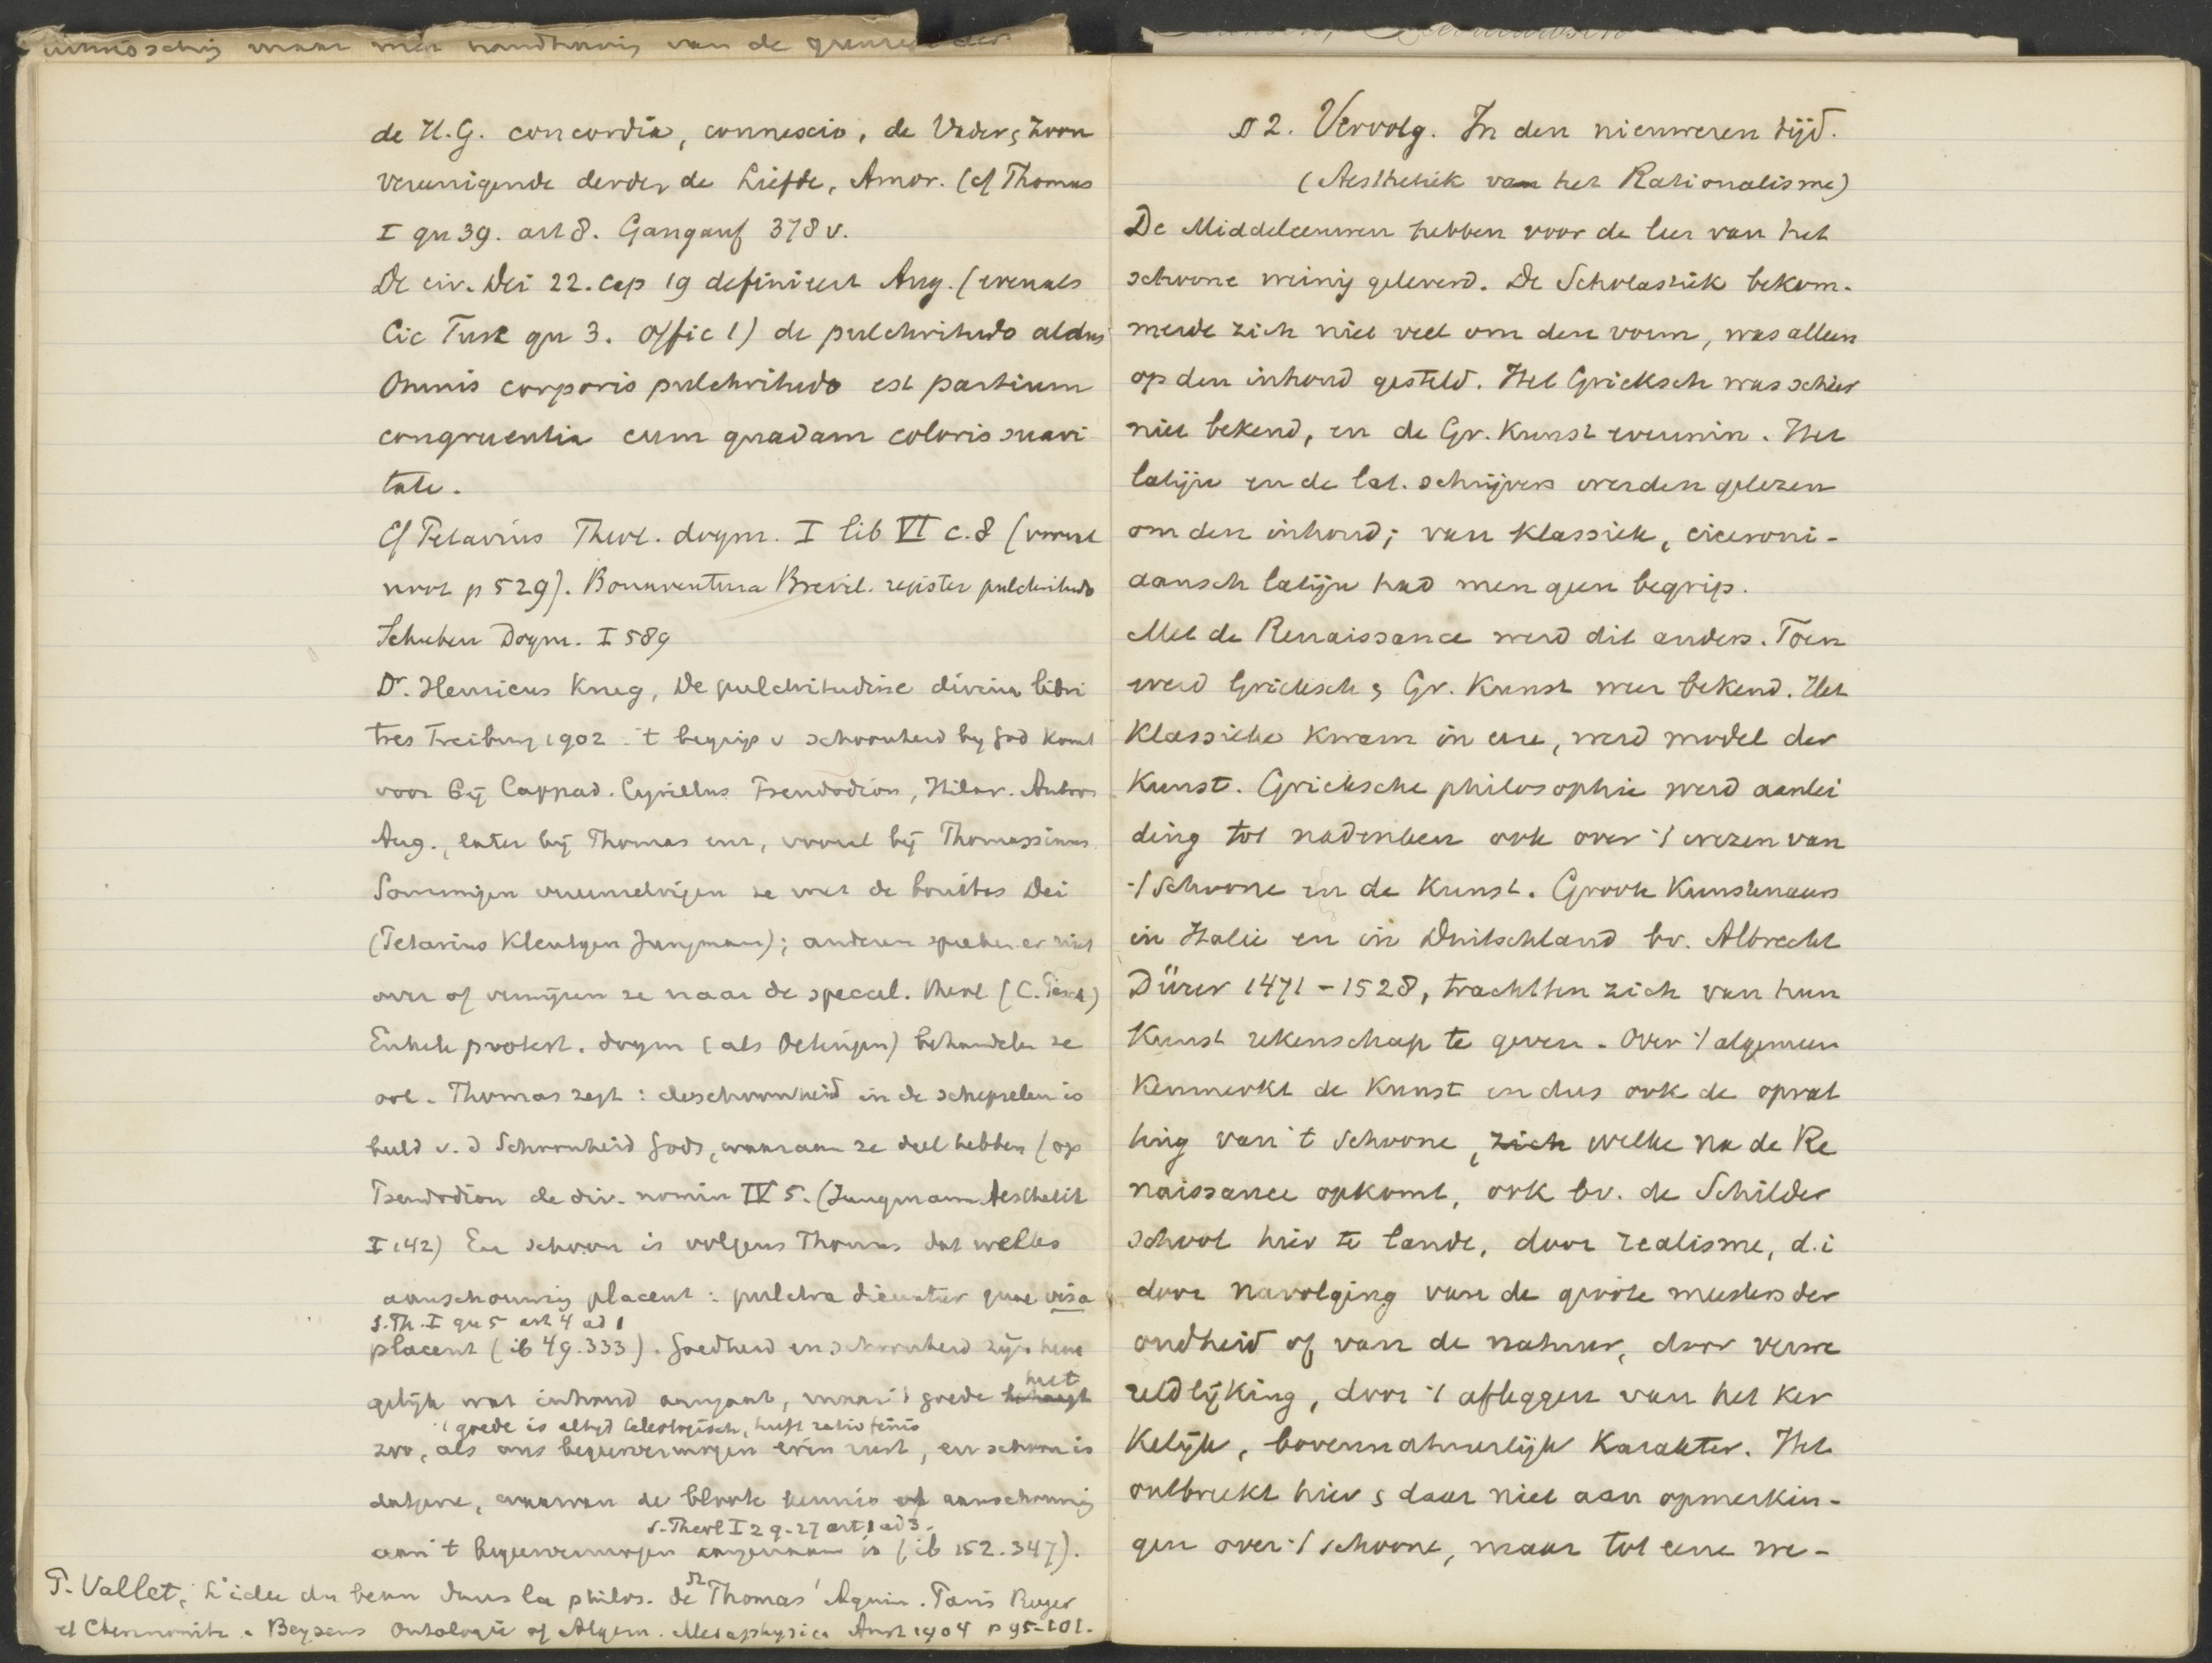 maar met handhaving van de grenzen der
de H.G. concordia, connexio, de Vader & Zoon
vereenigende derder de Liefde, Amor. (cf Thomas
I qu 39. art 8. Gangauf 378 v.
De civ. Dei 22. cap 19 definieert Aug. (evenals
Cic Tusc qu 3. Offic 1) de pulchritudo aldus
Omnis corporis pulchritudo est partium
congruentia cum quadam coloris suavi
tate.
Cf Petavius Theol. dogm. I lib VI c. 8 (vooral
noot p 529). Bonaventura Brevil. register pulchritudo
Scheeben Dogm. I 589
Dr. Henricus Krug, De pulchritudine divina libri
tres Freiburg 1902. 't begrip v schoonheid bij God komt
voor bij Cappad. Cyrillus Pseudodion, Hilar. Ambros
Aug., later bij Thomas enz, vooral bij Thomassinus.
Sommigen vereenzelvigen ze met de bonitas Dei
(Petavius Kleutgen Jungmann); anderen spreken er niet
over of verwijzen ze naar de speciel. theol (C. Pesch)
Enkele protest. dogm (als Oetinger) behandelen ze
ook. Thomas zegt: de schoonheid in de schepselen is
beeld v. d Schoonheid Gods, waaraan ze deel hebben (op
Pseudodion de div. nomin IV 5. (Jungmann Aesthetik
I 142) En schoon is volgens Thomas dat welks
aanschouwing placent: pulchra dicuntur quae visa
S. Th. I qu 5 art 4 ad 1
placent (ib 49.333). Goedheid en schoonheid zijn hene
gelijk wat inhoud aangaat, maar 't goede behaagt
heet
't goede is altijd teleologisch, heeft ratio finis
zoo, als ons begeervermogen erin rust, en schoon is
datgene, waarvan de bloote kennis of aanschouwing
S. Theol I 2 q. 27 art 1 ad 3.
aan 't begeervermogen aangenaam is (ib 152.347).
P. Vallet, L'idee du beau dans la philos. de St Thomas d'Aquin. Paris Roger
et Chernovitz. Beysens Ontologie of Algem. Metaphysica Amst 1904 p 95-101.
§ 2. Vervolg. In den nieuweren tijd.
(Aesthetiek van het Rationalisme)
De Middeleeuwen hebben voor de leer van het
schoone weinig geleverd. De Scholastiek bekom-
merde zich niet veel om den vorm, was alleen
op den inhoud gesteld. Het Grieksch was schier
niet bekend, en de Gr. Kunst evenmin. Het
latijn en de lat. schrijvers werden gelezen
om den inhoud; van klassiek, ciceroni-
aansch latijn had men geen begrip.
Met de Renaissance werd dit anders. Toen
werd Grieksch & Gr. Kunst weer bekend. Het
Klassieke kwam in eere, werd model der
Kunst. Grieksche philosophie werd aanlei
ding tot nadenken ook over 't wezen van
't Schoone en de Kunst. Groote Kunstenaars
in Italie en in Duitschland bv. Albrecht
Dürer 1471 - 1528, trachtten zich van hun
Kunst rekenschap te geven. Over 't algemeen
kenmerkt de Kunst en dus ook de opvat
ting van 't schoone, zich welke na de Re
naissance opkomt, ook bv. de Schilder
school hier te lande, door realisme, d.i
door navolging van de groote meesters der
oudheid of van de natuur, door verwe
reldlijking, door 't afleggen van het ker
kelijk, bovennatuurlijk karakter. Het
ontbreekt hier & daar niet aan opmerkin-
gen over 't schoone, maar tot eene we-